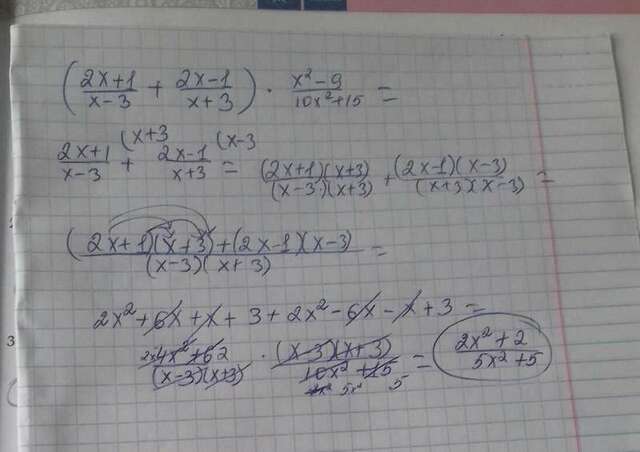 ( (2x+1)/(x-3) + (2x-1)/(x+3) ) · (x²-9)/(10x²+15) =
(x+3 (x-3
(2x+1)/(x-3) + (2x-1)/(x+3) = (2x+1)(x+3)/(x-3)(x+3) + (2x-1)(x-3)/(x+3)(x-3) =
(2x+1)(x+3)+(2x-1)(x-3)/(x-3)(x+3) =
2x²+6x+x+3+2x²-6x-x+3=
4x²+6 2/(x-3)(x+3) · (x-3)(x+3)/10x²+15 = (2x²+2)/(5x²+5)
5x² 5
3